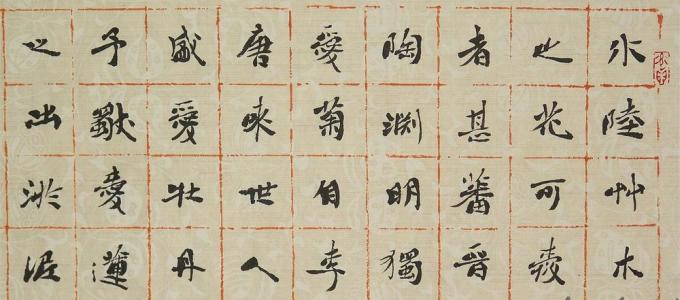 水陸艸木
之花可愛
者甚蕃晉
陶淵明獨
愛菊自李
唐來世人
盛愛牡丹
予獨愛蓮
之出淤泥